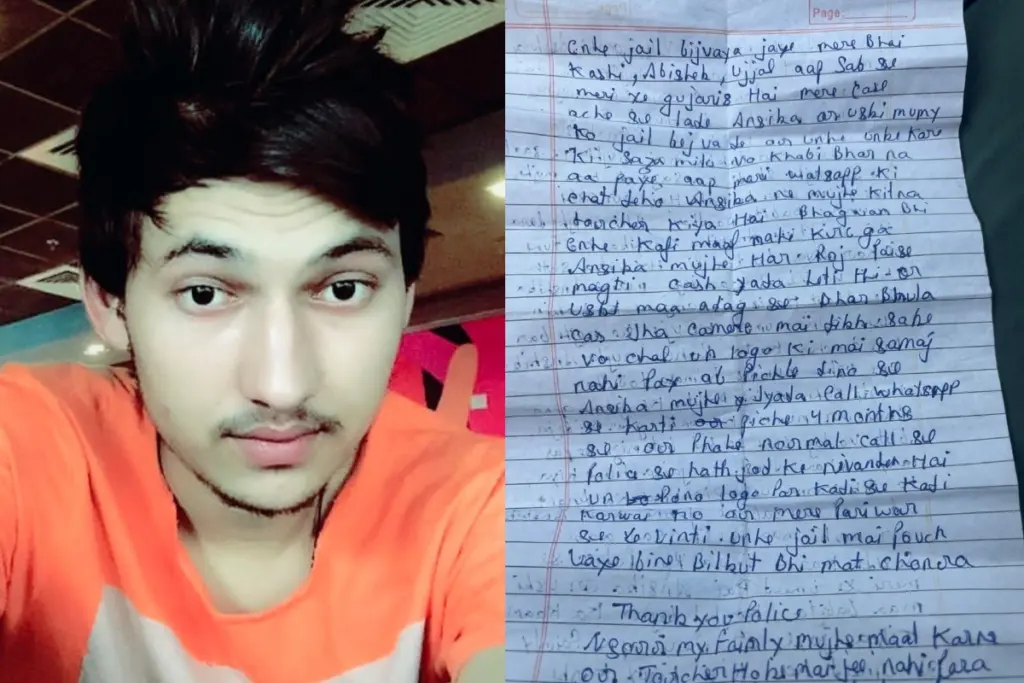 Page:
Enhe jail bijvaya jaye mere Bhai
Kashi, Abishek, Ujjal aap Sab se
meri ye gujaris Hai mere Case
ache se lade Ansika or uski mumy
ko jail bejvade aor unhe unke kare
Ki Saza mile vo khabi Bhar na
aa paye aap mari watsapp ki
chat dekho Ansika ne mujhe kitna
taucher kiya Hai Bhagwan Bhi
Enhe Kafi maaf nahi Kirega
Ansika mujhe Har Roj Paise
magti cash yada leti Hi or
uski maa alag se
camere mai dikh sake
vo chal un logo ki mai samaj
nahi paya ab Pichle dino se
Ansika mujhe Jyada Call whatsapp
se karti piche 4 months
se or Phahe normal call se
Police se hath jod ke nivanden Hai
un dono logo Par Kadi se Kadi
Karwai ho aor mere Pariwar
se ye vinti unhe jail mai Pouch
vaye bina Bilkul bhi mat chorna
Thank you Police
my Faimly mujhe maaf Karna
or Taircher Hoke mar jee nahi Para